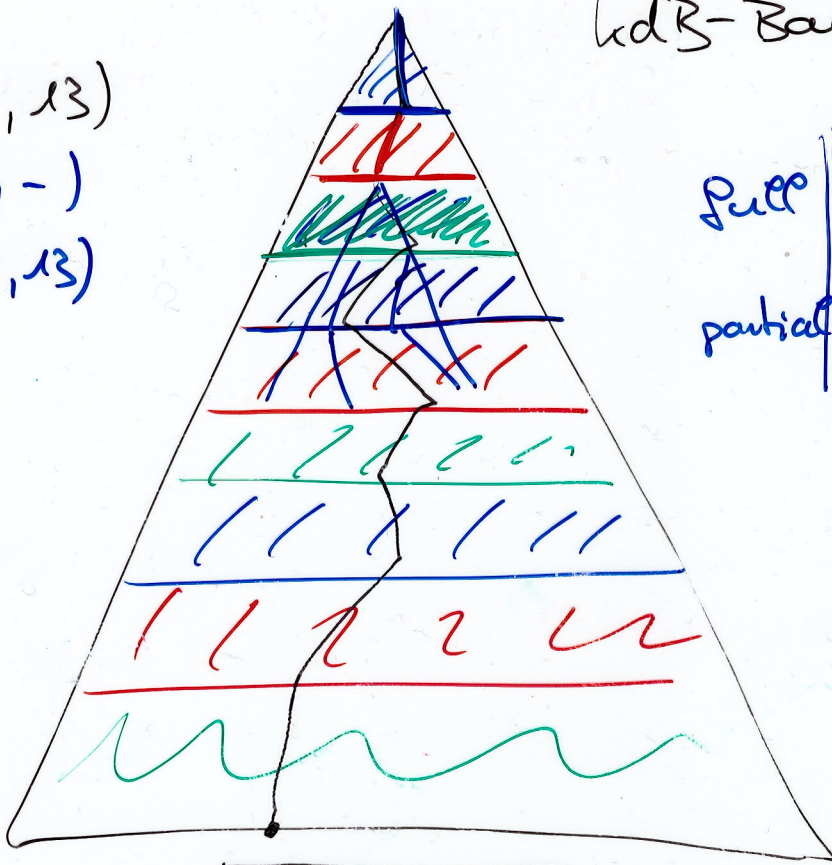 kdB-Bau
, 13)
, -)
, 13)
full
partial